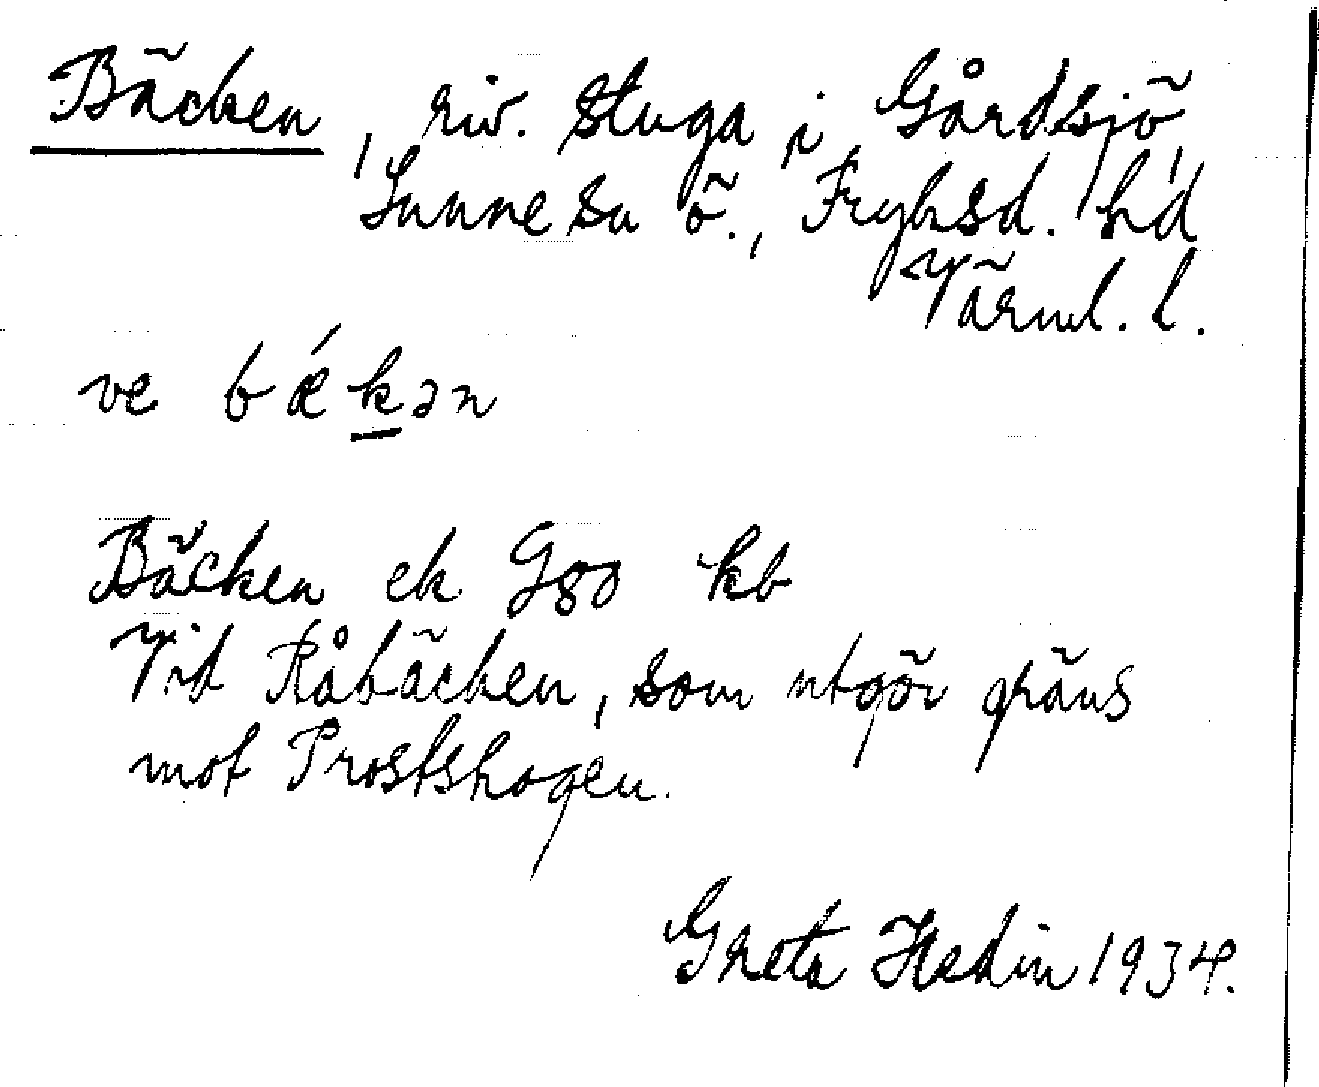 Bäcken, riv. stuga i Gårdsjö,
Sunne sn ö., Fryksd. hd
Värml. l.
ve bǽkən
Bäcken ek Gsö kb
Vid Råbäcken, som utgör gräns
mot Prostskogen.
Greta Hedin 1934.